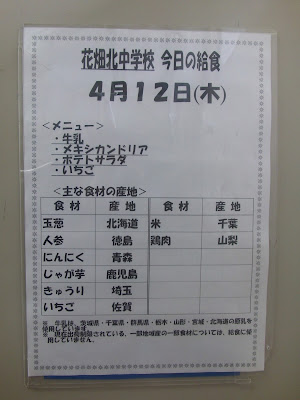 花畑北中学校 今日の給食
4月12日(木)
＜メニュー＞
・牛乳
・メキシカンドリア
・ポテトサラダ
・いちご
＜主な食材の産地＞
食材 産地 食材 産地
玉葱 北海道 米 千葉
人参 徳島 鶏肉 山梨
にんにく 青森
じゃが芋 鹿児島
きゅうり 埼玉
いちご 佐賀
※ 牛乳は、茨城県・千葉県・群馬県・栃木・山形・宮城・北海道の原乳を
使用しています。
※ 現在出荷制限されている、一部地域産の一部食材については、給食に使
用していません。